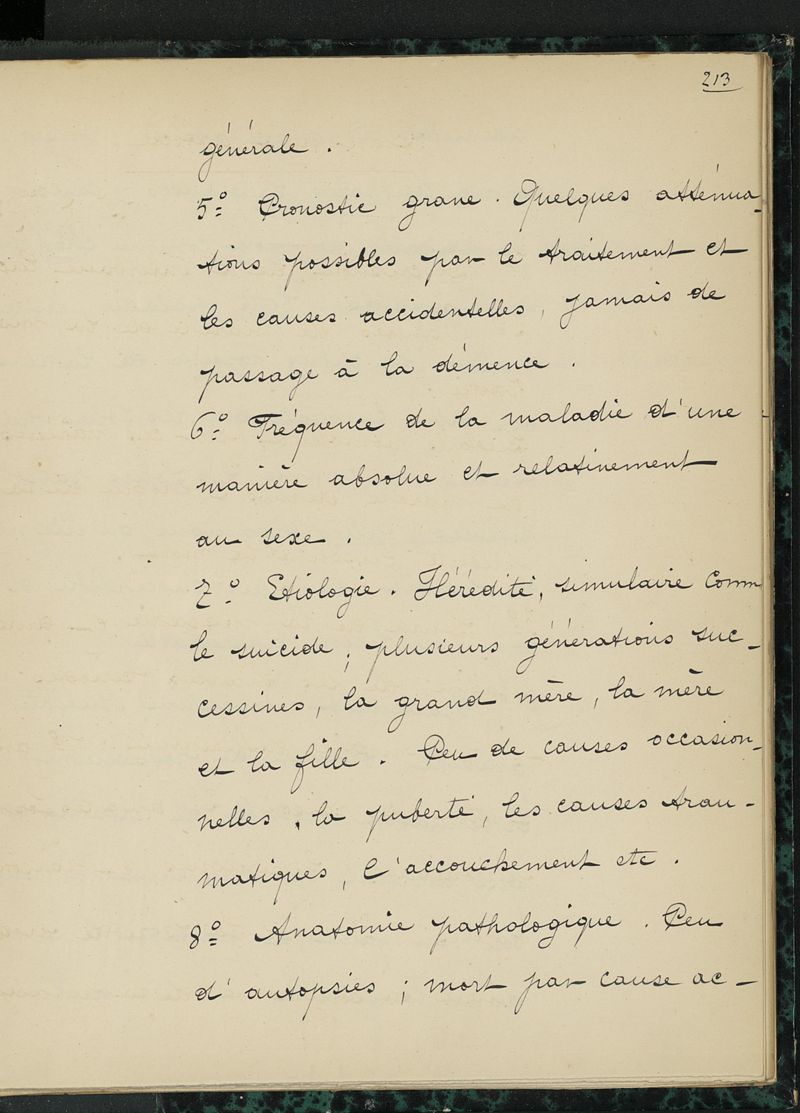 213
générale .
5º Pronostic grave . Quelques atténua-
tions possibles par le traitement et
les causes accidentelles , jamais de
passage à la démence .
6º Fréquence de la maladie d'une
manière absolue et relativement
au sexe .
7º Etiologie . Hérédité, simulaire comm
le suicide ; plusieurs générations suc-
cessives, la grand mère, la mère
et la fille . Peu de causes occasion-
nelles , la puberté, les causes trau-
matiques, l'accouchement etc .
8º Anatomie pathologique . Peu
d'autopsies ; mort par cause ac-